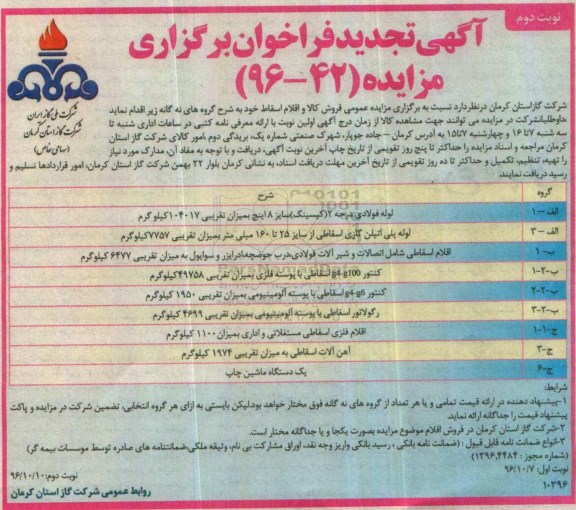 نوبت دوم
آگهی تجدید فراخوان برگزاری
مزایده (۴۲-۹۶)
شرکت ملی گاز ایران
شرکت گاز استان کرمان
(سهامی خاص)
شرکت گاز استان کرمان در نظر دارد نسبت به برگزاری مزایده عمومی فروش کالا و اقلام اسقاط خود به شرح گروه های نه گانه زیر اقدام نماید
داوطلبانشرکت در مزایده می توانند جهت مشاهده کالا از زمان درج آگهی اولین نوبت با ارائه معرفی نامه کتبی در ساعات اداری شنبه تا
سه شنبه ۷ تا ۱۶ و چهارشنبه ۷ تا ۱۵ به آدرس کرمان – جاده جوپار، شهرک صنعتی شماره یک، بریدگی دوم ،امور کالای شرکت گاز استان
کرمان مراجعه و اسناد مزایده را حداکثر تا پنج روز تقویمی از تاریخ چاپ آخرین نوبت آگهی، دریافت و با توجه به مفاد آن، مدارک مورد نیاز
را تهیه، تنظیم، تکمیل و حداکثر تا ده روز تقویمی از تاریخ آخرین مهلت دریافت اسناد، به نشانی کرمان بلوار ۲۲ بهمن شرکت گاز استان کرمان، امور قراردادها تسلیم و
رسید دریافت نمایند.
گروه شرح
الف – ۱ لوله فولادی درجه ۲(کیسینگ)سایز ۸ اینچ بمیزان تقریبی ۱۰۴۰۱۷کیلو گرم
الف – ۳ لوله پلی اتیلن گازی اسقاطی از سایز ۲۵ تا ۱۶۰ میلی متر بمیزان تقریبی۷۷۵۷کیلوگرم
ب – ۱ اقلام اسقاطی شامل اتصالات و شیر آلات فولادی،درب حوضچه،ادرایزر و سوایول به میزان تقریبی ۶۴۷۷ کیلوگرم
ب-۲-۱ کنتور g4-g100 اسقاطی با پوسته فلزی بمیزان تقریبی ۴۹۷۵۸کیلوگرم
ب-۲-۲ کنتور g4-g6 اسقاطی با پوسته آلومینیومی بمیزان تقریبی ۱۹۵۰ کیلوگرم
ب-۲-۳ رگولاتور اسقاطی با پوسته آلومینیومی بمیزان تقریبی ۴۶۹۹ کیلوگرم
ج-۱-۱ اقلام فلزی اسقاطی مستغلاتی و اداری بمیزان ۱۱۰۰ کیلوگرم
ج-۳ آهن آلات اسقاطی به میزان تقریبی ۱۹۷۴ کیلوگرم
ج-۶ یک دستگاه ماشین چاپ
شرایط:
۱-پیشنهاد دهنده در ارائه قیمت تمامی و یا هر تعداد از گروه های نه گانه فوق مختار خواهد بود.لیکن بایستی به ازای هر گروه انتخابی، تضمین شرکت در مزایده و پاکت
پیشنهاد قیمت را جداگانه ارائه نماید.
۲-شرکت گاز استان کرمان در فروش اقلام موضوع مزایده بصورت یکجا و یا جداگانه مختار است.
۳-انواع ضمانت نامه قابل قبول : (ضمانت نامه بانکی ، رسید بانکی واریز وجه نقد، اوراق مشارکت بی نام، وثیقه ملکی،ضمانتنامه های صادره توسط موسسات بیمه گر)
(شماره مجوز : ۱۳۹۶،۴۴۸۴)
نوبت اول: ۹۶/۱۰/۷ نوبت دوم: ۹۶/۱۰/۱۰
۱۰۳۹۶ روابط عمومی شرکت گاز استان کرمان